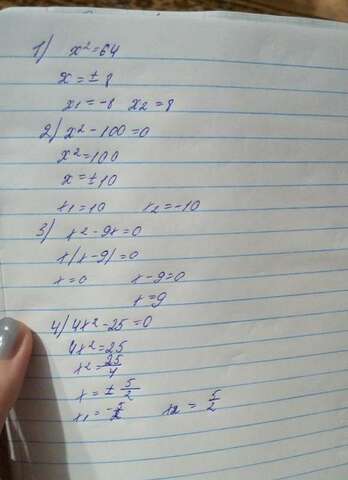 1) x²=64
x=±8
x₁=-8 x₂=8
2) x²-100=0
x²=100
x=±10
x₁=10 x₂=-10
3) x²-9x=0
x(x-9)=0
x=0 x-9=0
x=9
4) 4x²-25=0
4x²=25
x²=25/4
x=±5/2
x₁=-5/2 x₂=5/2